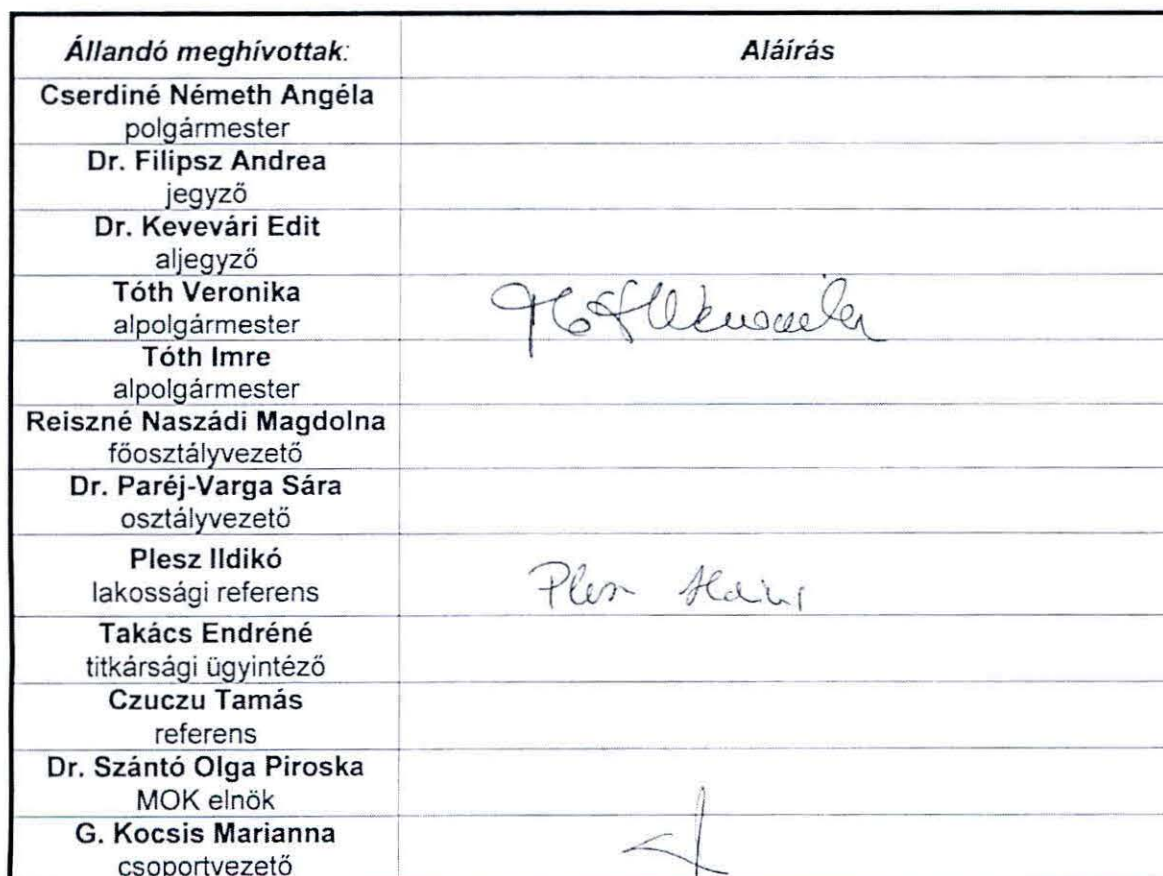 Állandó meghívottak: Aláírás
Cserdiné Németh Angéla
polgármester
Dr. Filipsz Andrea
jegyző
Dr. Kevevári Edit
aljegyző
Tóth Veronika
alpolgármester
Tóth Imre
alpolgármester
Reiszné Naszádi Magdolna
főosztályvezető
Dr. Paréj-Varga Sára
osztályvezető
Plesz Ildikó
lakossági referens
Takács Endréné
titkársági ügyintéző
Czuczu Tamás
referens
Dr. Szántó Olga Piroska
MOK elnök
G. Kocsis Marianna
csoportvezető